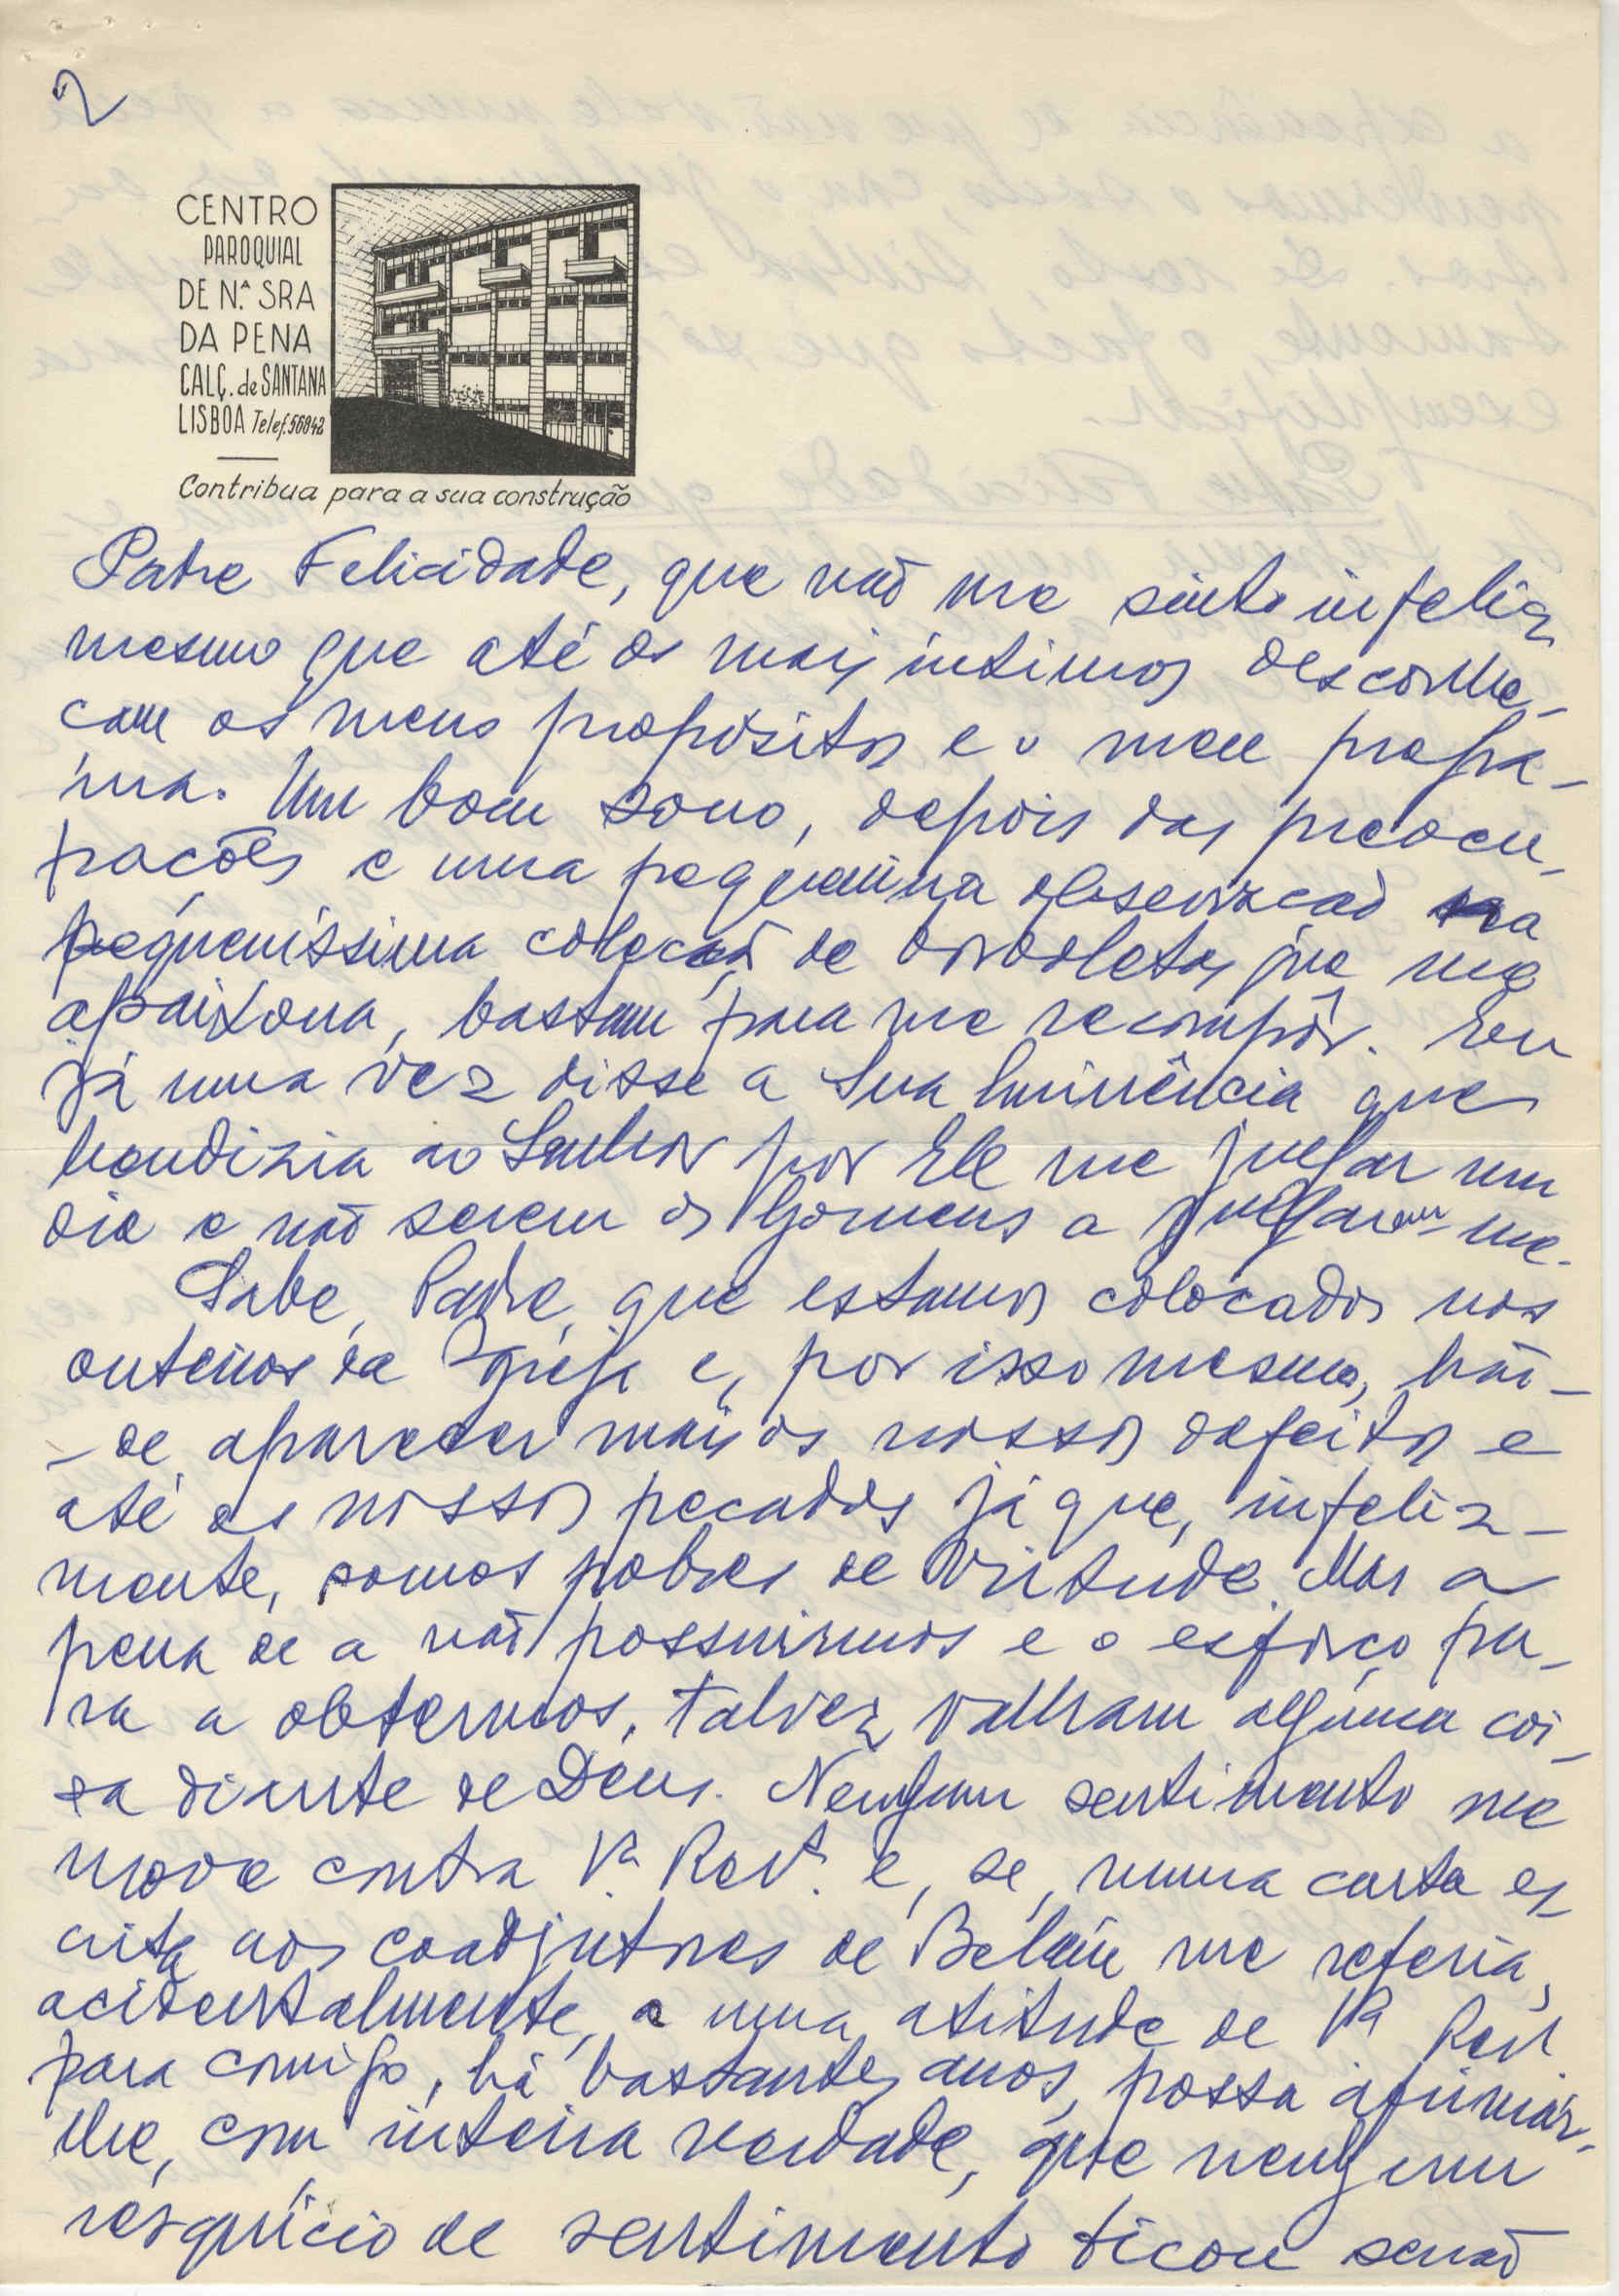 2
CENTRO
PAROQUIAL
DE N.ª SRA
DA PENA
CALÇ. de SANTANA
LISBOA Telef. 56842
Contribua para a sua construção
Padre Felicidade, que não me sinto infeliz
mesmo que até os mais íntimos desconhe-
çam os meus propósitos e o meu progra-
ma. Um bom sono, depois das preocu-
pações e uma pequenina observação na
pequeníssima colecção de borboletas que me
apaixona, bastam para me recompôr. Eu
já uma vez disse a Sua Eminência que
bendizia ao Senhor por Ele me julgar um
dia e não serem os homens a julgarem-me.
Sabe, Padre, que estamos colocados nos
outeiros da Igreja e, por isso mesmo, hão-
-de aparecer mais os nossos defeitos e
até os nossos pecados já que, infeliz-
mente, somos pobres de virtude. Mas a
pena de a não possuirmos e o esforço pa-
ra a obtermos, talvez valham alguma coi-
sa diante de Deus. Nenhum sentimento me
move contra V.ª Rev.ª e, se, numa carta es
crita aos coadjutores de Belém me referia,
acidentalmente, a uma atitude de Vª Revª
para comigo, há bastantes anos, posso afirmar-
lhe, com inteira verdade, que nenhum
resquício de sentimento ficou senão